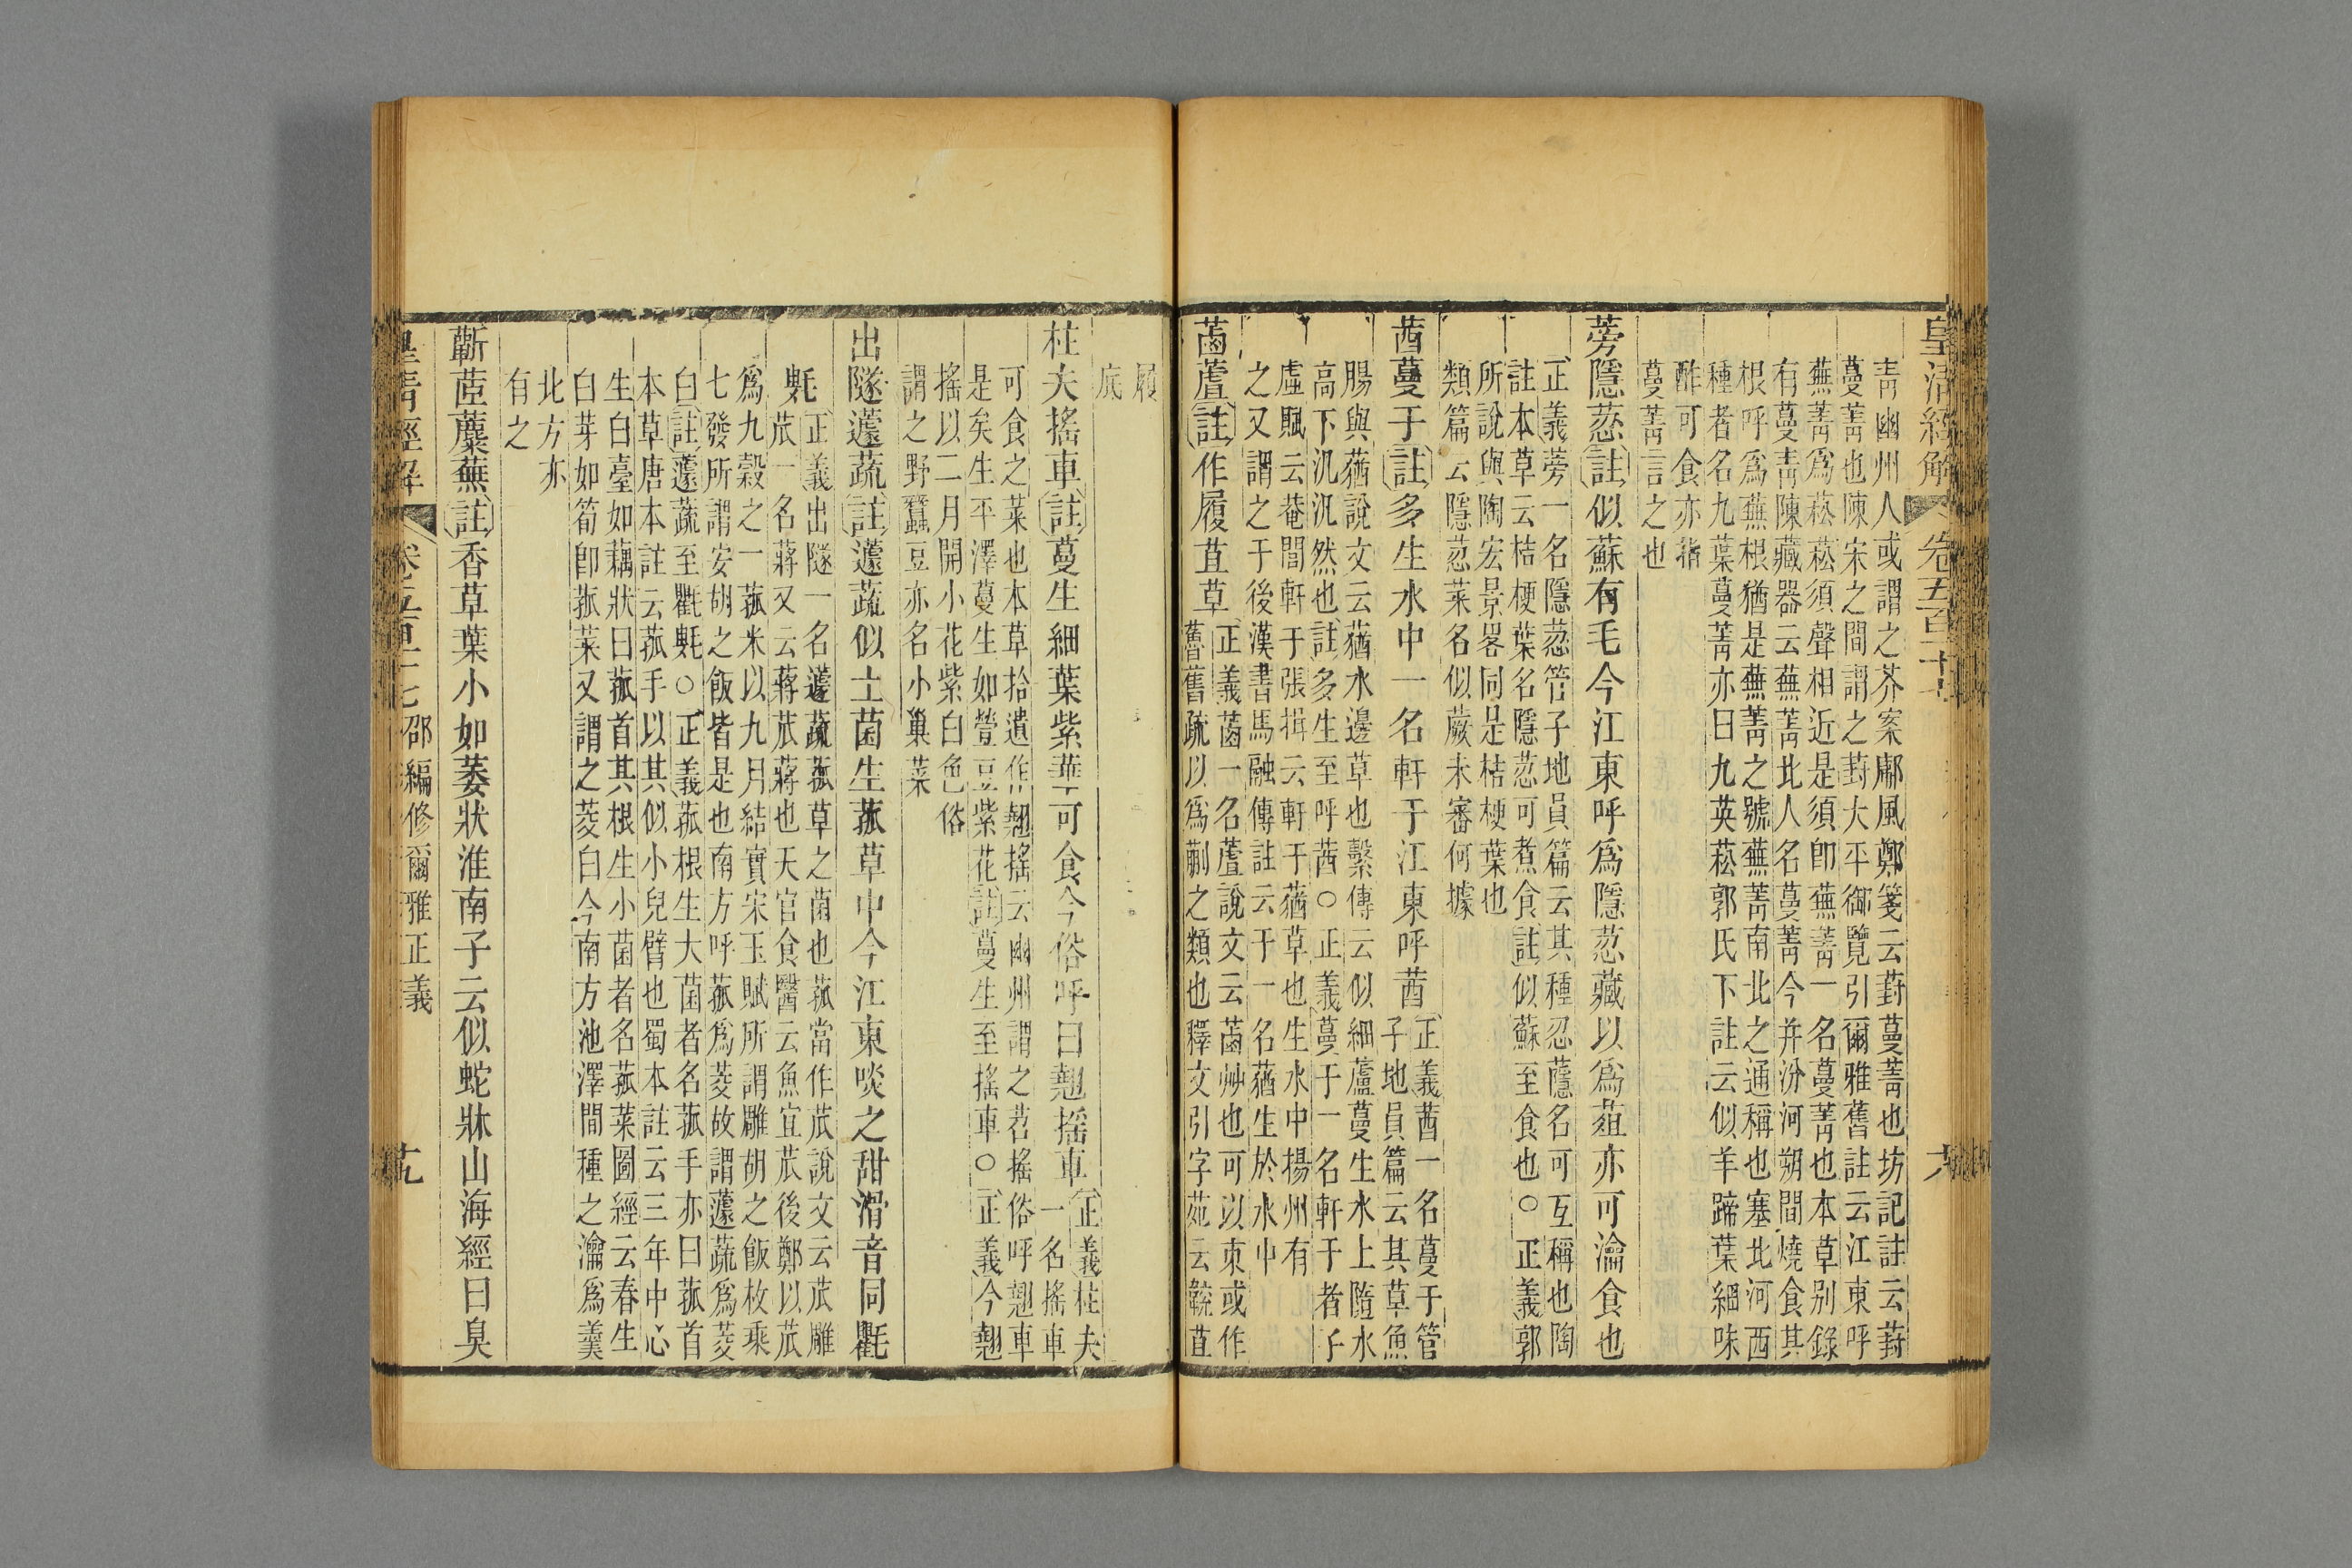 皇清經解 卷五百二十七
靑幽州人或謂之芥案鄘風鄭箋云葑蔓菁也坊記註云葑
蔓菁也陳宋之間謂之葑大平御覽引爾雅舊註云江東呼
蕪菁爲菘菘須聲相近是須卽蕪菁一名蔓菁也本草别錄
有蔓菁陳藏器云蕪菁北人名蔓菁今并汾河朔間燒食其
根呼爲蕪根猶是蕪菁之號蕪菁南北之通稱也塞北河西
種者名九葉蔓菁亦曰九英菘郭氏下註云似羊蹄葉細味
酢可食亦指
蔓菁言之也
蒡隱荵註似蘇有毛今江東呼爲隱荵藏以爲葅亦可瀹食也
正義蒡一名隱荵管子地員篇云其種忍蘟名可互稱也陶
註本草云桔梗葉名隱荵可煮食註似蘇至食也○正義郭
所說與陶宏景畧同是桔梗葉也
類篇云隱荵菜名似蕨未審何據
莤蔓于註多生水中一名軒于江東呼莤正義莤一名蔓于管
子地員篇云其草魚
腸與蕕說文云蕕水邊草也繫傳云似細蘆蔓生水上隨水
高下汎汎然也註多生至呼莤○正義蔓于一名軒于者子
虛賦云菴閭軒于張揖云軒于蕕草也生水中揚州有
之又謂之于後漢書馬融傳註云于一名蕕生於水中
菡蘆註作履苴草正義菡一名蘆說文云菡艸也可以束或作
蔖舊疏以爲蒯之類也釋文引字苑云䩳苴
履
底
柱夫搖車註蔓生細葉紫華可食今俗呼曰翹搖車正義柱夫
一名搖車
可食之菜也本草拾遺作翹搖云幽州謂之苕搖俗呼翹車
是矣生平澤蔓生如䝁豆紫花註蔓生至搖車○正義今翹
搖以二月開小花紫白色俗
謂之野蠶豆亦名小巢菜
出隧蘧蔬註蘧蔬似土菌生菰草中今江東啖之甜滑音同氍
㲣正義出隧一名蘧蔬菰草之菌也菰當作苽說文云苽雕
苽一名蔣又云蔣苽蔣也天官食醫云魚宜苽後鄭以苽
爲九穀之一菰米以九月結實宋玉賦所謂雕胡之飯枚乘
七發所謂安胡之飯皆是也南方呼菰爲菱故謂蘧蔬爲菱
白註蘧蔬至氍㲣○正義菰根生大菌者名菰手亦曰菰首
本草唐本註云菰手以其似小兒臂也蜀本註云三年中心
生白臺如藕狀曰菰首其根生小菌者名菰菜圖經云春生
白芽如筍卽菰菜又謂之茭白今南方池澤間種之瀹爲羹
北方亦
有之
蘄茝蘪蕪註香草葉小如萎狀淮南子云似蛇牀山海經曰臭
皇清經解 卷五百二十七 邵編修爾雅正義